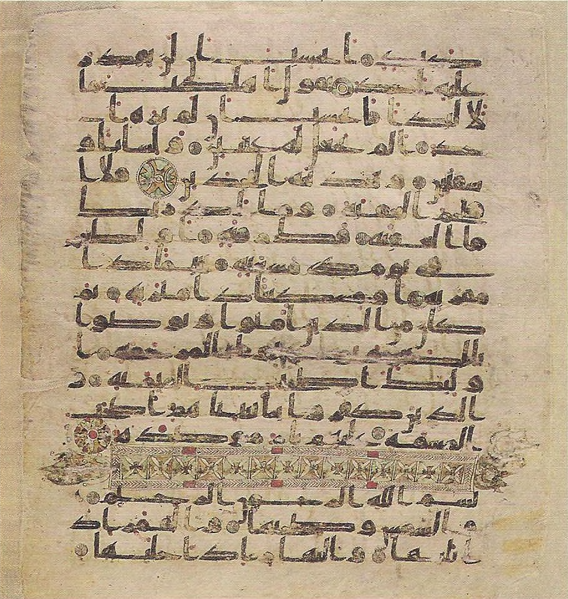 في كبد ايحسب ان لن يقدر
عليه احد يقول اهلكت ما
لا لبدا ايحسب ان لم يره ا
حد الم نجعل له عينين ولسانا و
شفتين وهدينه النجدين فلا ا
قتحم العقبه وما ادريك
ما العقبه فك رقبه او اطعم
في يوم ذي مسغبه يتيما ذا
مقربه او مسكينا ذا متربه ثم
كان من الذين امنوا وتواصوا
بالصبر وتواصوا بالمرحمه ا
وليك اصحب الميمنه و
الذين كفروا بايتنا هم اصحب
المشمه عليهم نار موصده
بسم الله الرحمن الرحيم
والشمس وضحيها والقمر اذ
ا تليها والنهار اذا جليها